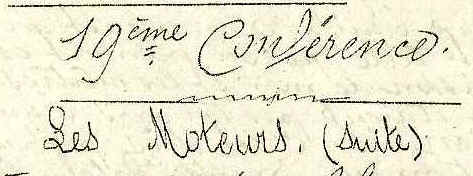 19ème Conférence.
Les Moteurs. (suite)